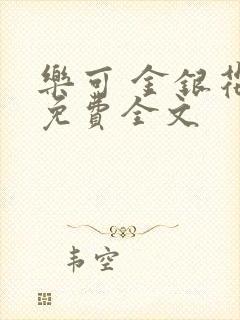 樂可 金銀花
免費全文
韦空